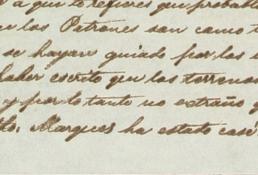 a que te refieres que probabl
los Patrones son como t
se hayan guiado por los
haber escrito que los terrenos
y por lo tanto no extraño q
to. Marques ha estado casi